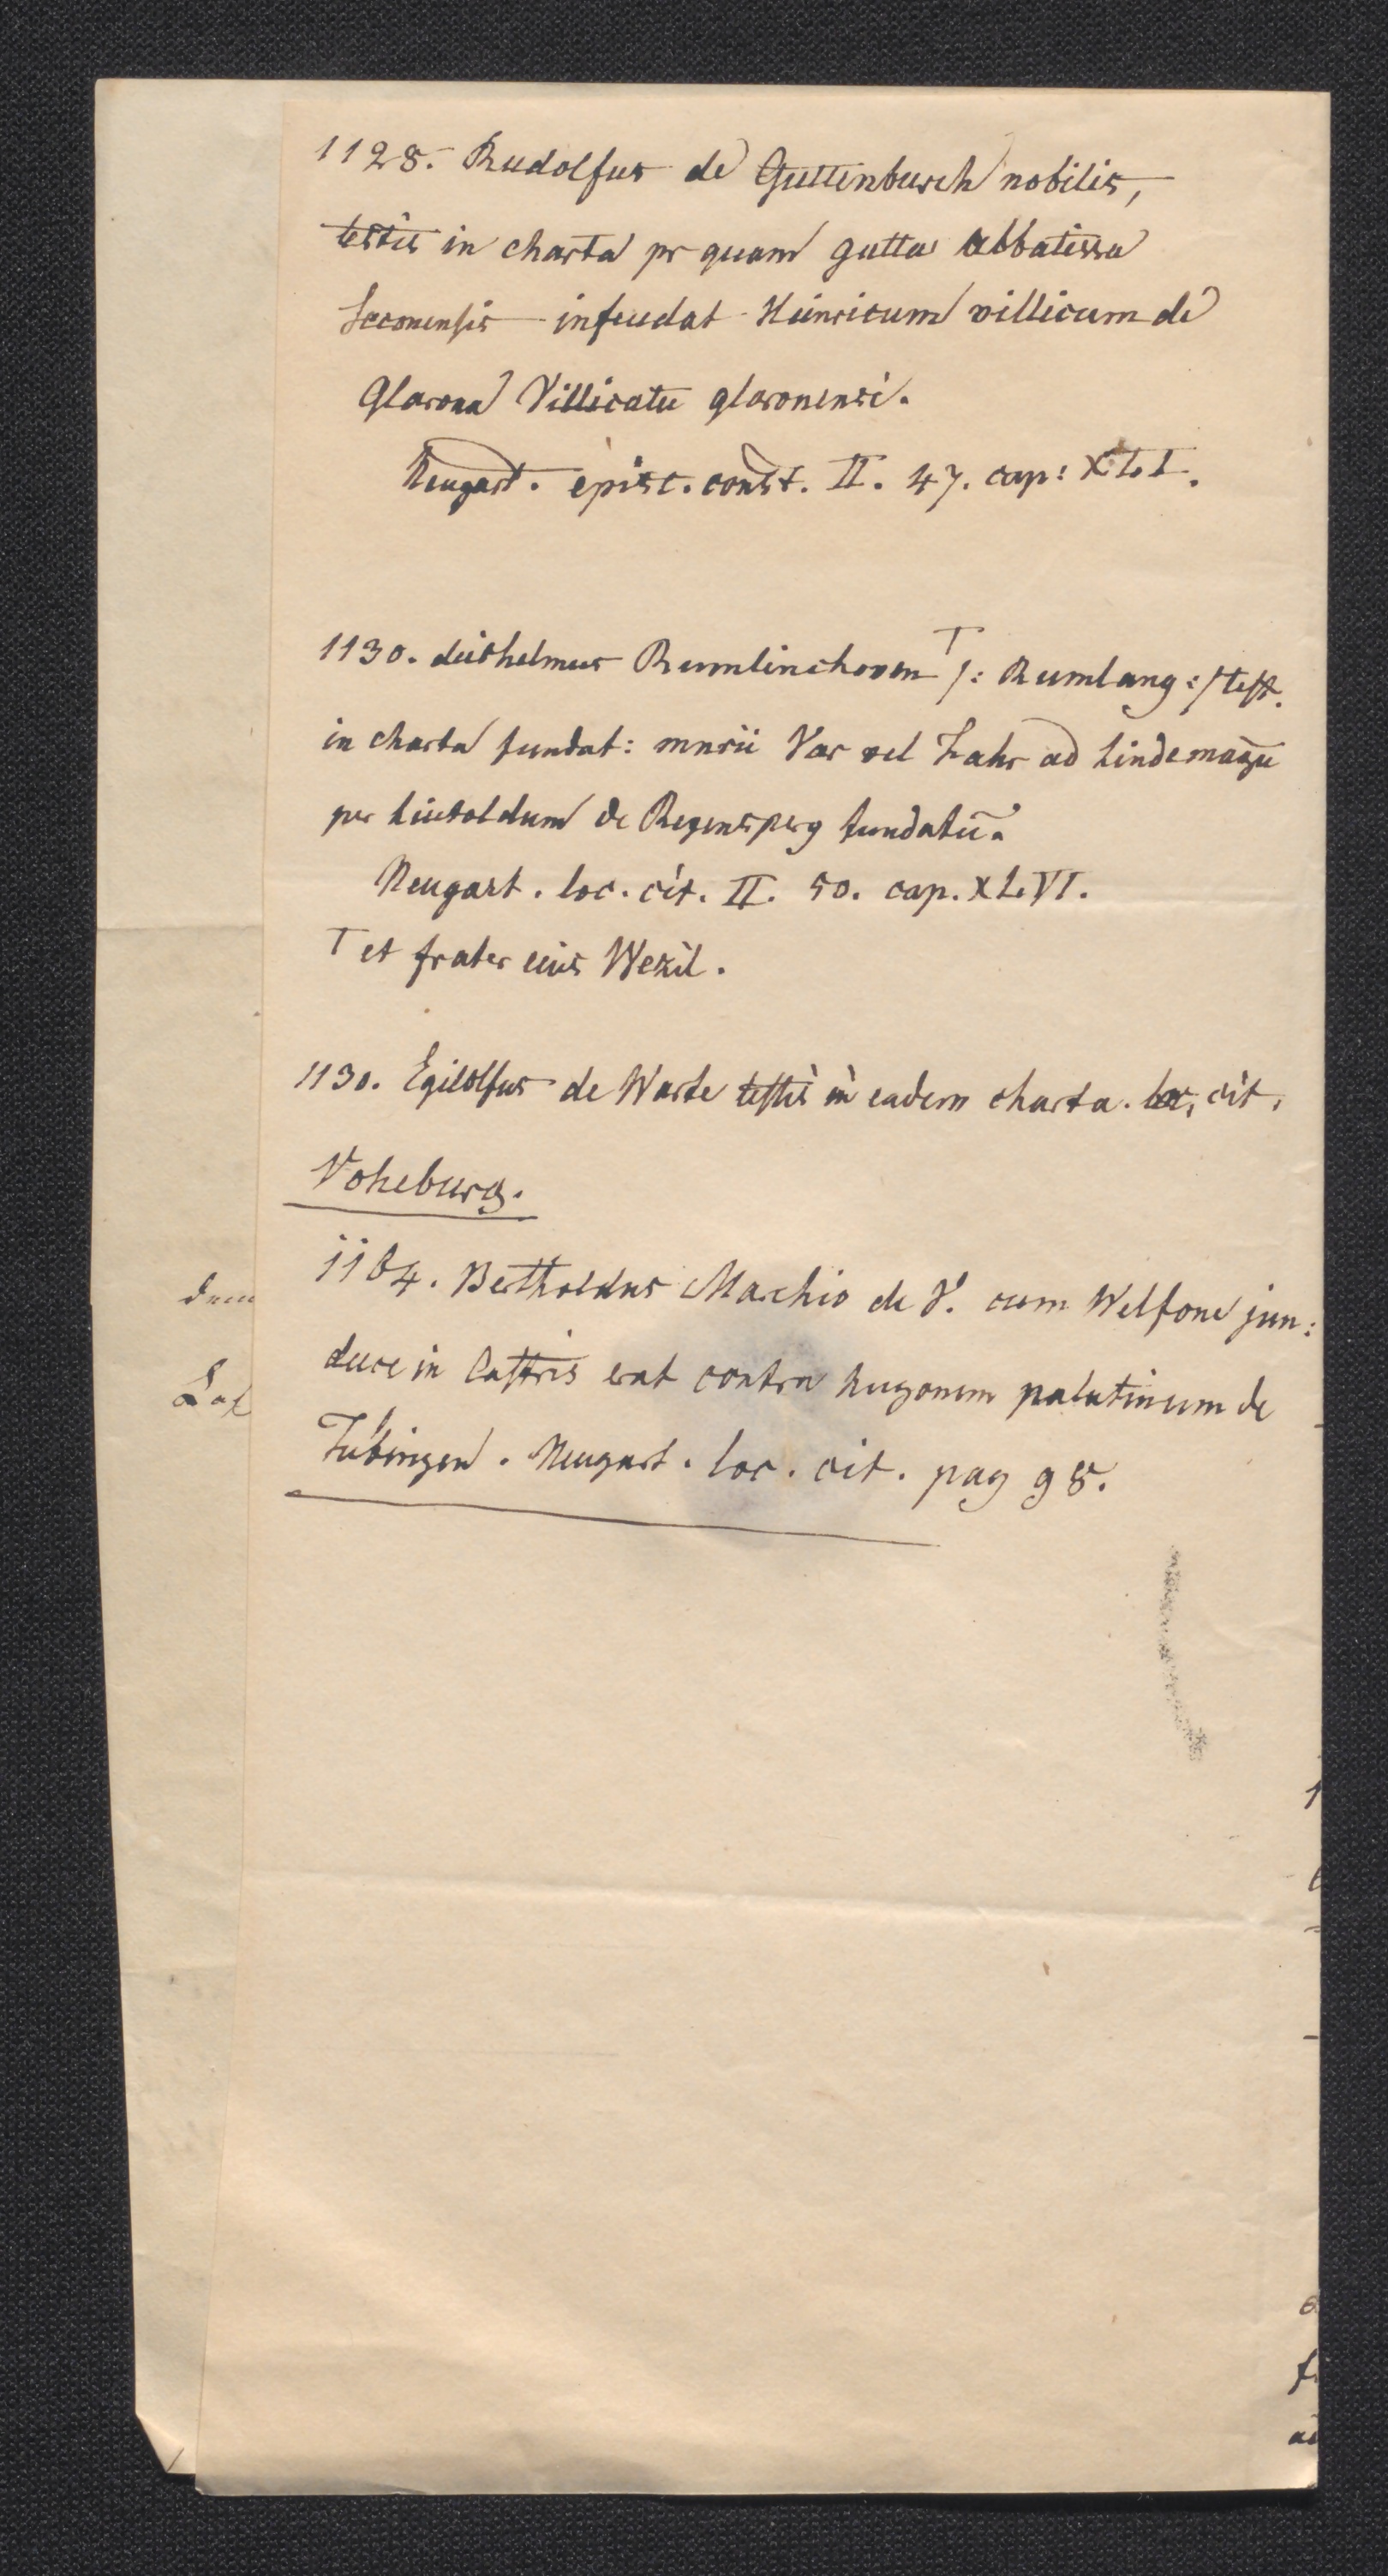 1128. Rudolfus de Guttenburch nobilis,
testis in charta pr quam gutta abbatissa
Seconensis infeudat Heinricum villicum de
Glarona Villicatu glaronensi.
Neugart. episc. const. II. 47. cap: XLI.
1130. Luithelmus Rumlinchoven T /: Rumlang :/ test.
in charta fundat: mnrii Var vel Fahr ad Lindemagu
per Liutoldum de Regensperg fundatu.
Neugart. loc. cit. II. 50. cap. XLVI.
T et frater eius Wezil.
1130. Egilolfus de Warte testis in eadem charta. loc. cit.
Voheburg.
1164. Bertholdus Marchio de V. cum Welfone jun:
duce in Castris erat contra hugonem palatinum de
Tübingen. Neugart. loc. cit. pag 98.